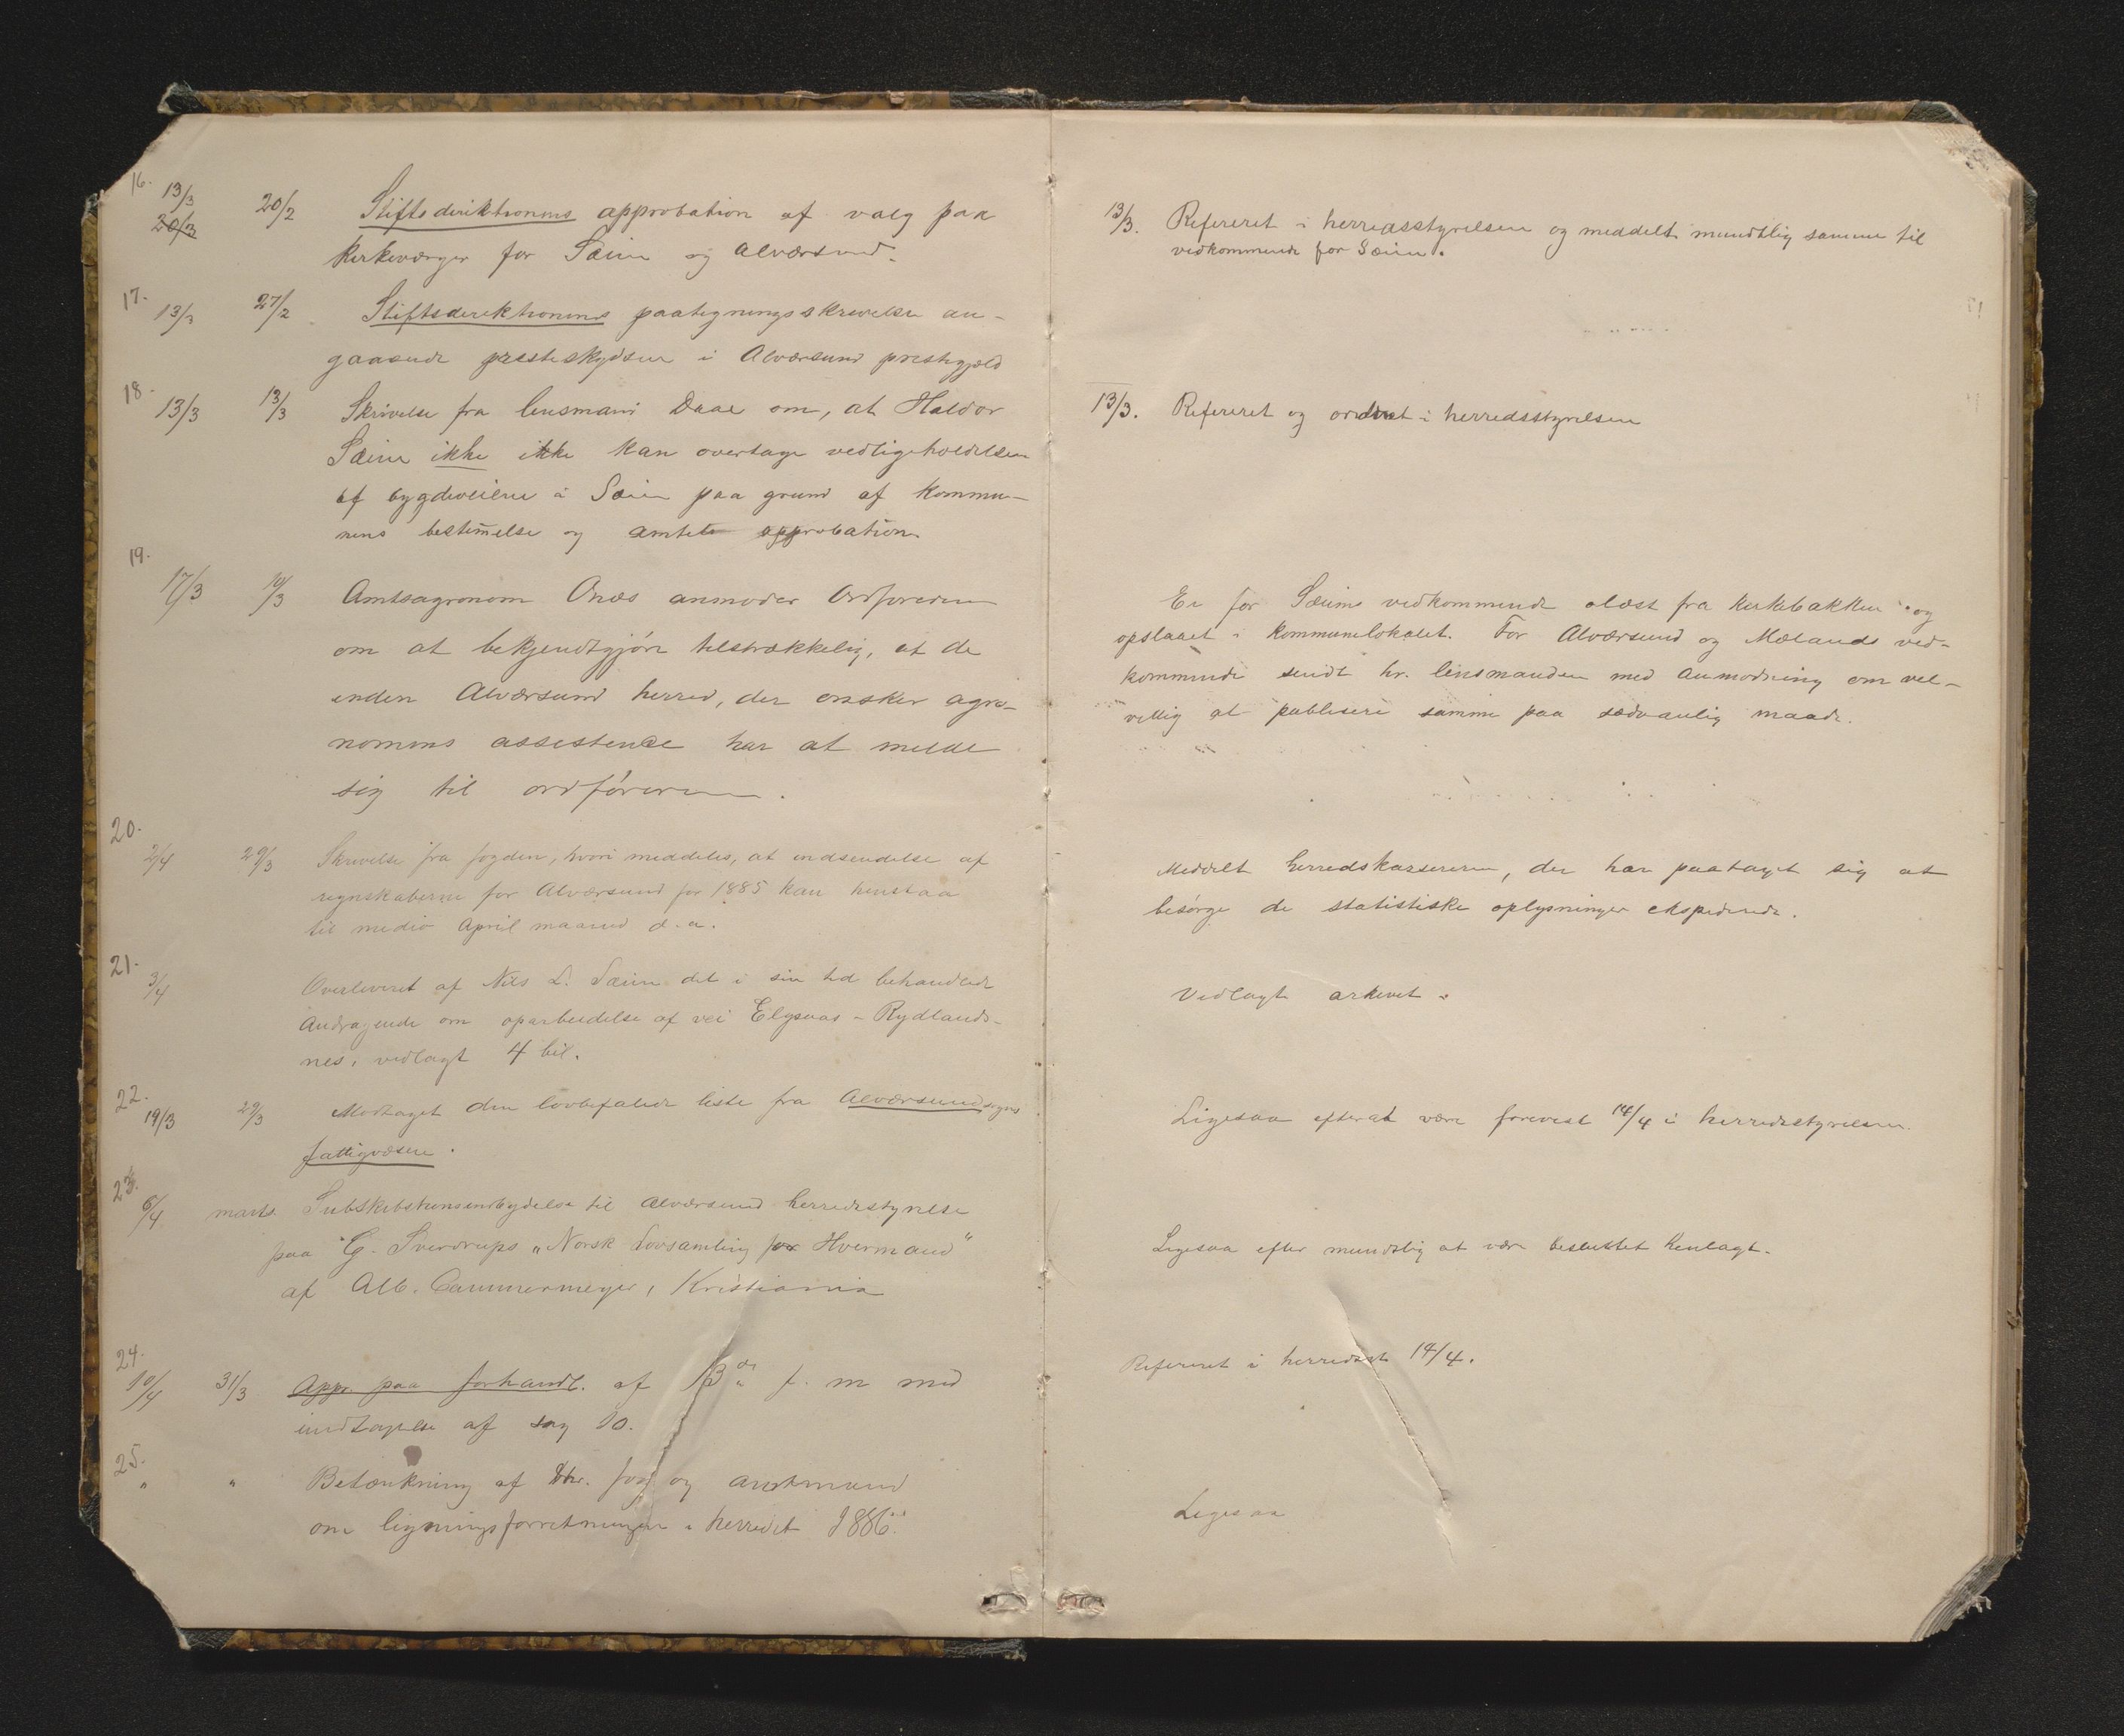 16. 13/3 20/2 Stiftsdirektionens approbation af valg paa
20/3
kirkeværger for Sæim og Alværsund.
17. 13/3 27/2 Stiftsdirektionens paategningsskrivelse an-
gaaende presteskydsen i Alværsund prestegjæld
18. 13/3 13/3 Skrivelse fra lensmand Daae om, at Haldor
Sæim ikke ikke kan overtage vedligeholdelsen
af bygdeveiene i Sæim paa grund af kommu-
nens bestemelse og amtets approbation.
19. 17/3 10/3 Amtsagronom Onæs anmoder Ordføreren
om at bekjendtgjøre tilstrækkelig, at de
inden Alværsund herred, der ønsker agro-
nomens assistence har at melde
sig til ordføreren.
20. 2/4 29/3 Skrivelse fra fogden, hvori meddeles, at indsendelse af
regnskaberne for Alværsund for 1885 kan henstaa
til medio April maaned d. a.
21. 3/4 Overleveret af Nils L. Sæim det i sin tid behandlede
Andragende om oparbeidelse af vei Elgsnas - Rydlands-
nes, vedlagt 4 bil.
22. 19/3 29/3 Modtaget den lovbefalede liste fra Alværsund sogns
fattigvæsen.
23. 6/4 marts. Subskribtionsindbydelse til Alværsund herredsstyrelse
paa G. Sverdrups „Norsk Lovsamling for Hvermand"
af Alb. Cammermeyer, Kristiania
24. 10/4 31/3 App. paa forhandl. af 13de f. m med
indtagelse af sag 10.
25. " " Betænkning af Dhr. fog og amtmand
om ligningsforretningen i herredet 1886.
13/3. Refereret i herredsstyrelsen og meddelt mundtlig samme til
vedkommende for Sæim.
13/3. Refereret og ordnet i herredsstyrelsen
Er for Sæims vedkommende oplæst fra kirkebakken og
opslaaet i kommunelokalet. For Alværsund og Mælands ved-
kommende sendt hr. lensmanden med anmodning om vel-
villig at publisere samme paa sædvanlig maade.
Meddelt herredskassereren, der har paataget sig at
besørge de statistiske oplysninger ekspederede.
Vedlagt arkivet.
Ligesaa efterat være forevist 14/4 i herredsstyrelsen.
Ligesaa efter mundtlig at være besluttet henlagt.
Refereret i herredsst 14/4.
Ligesaa